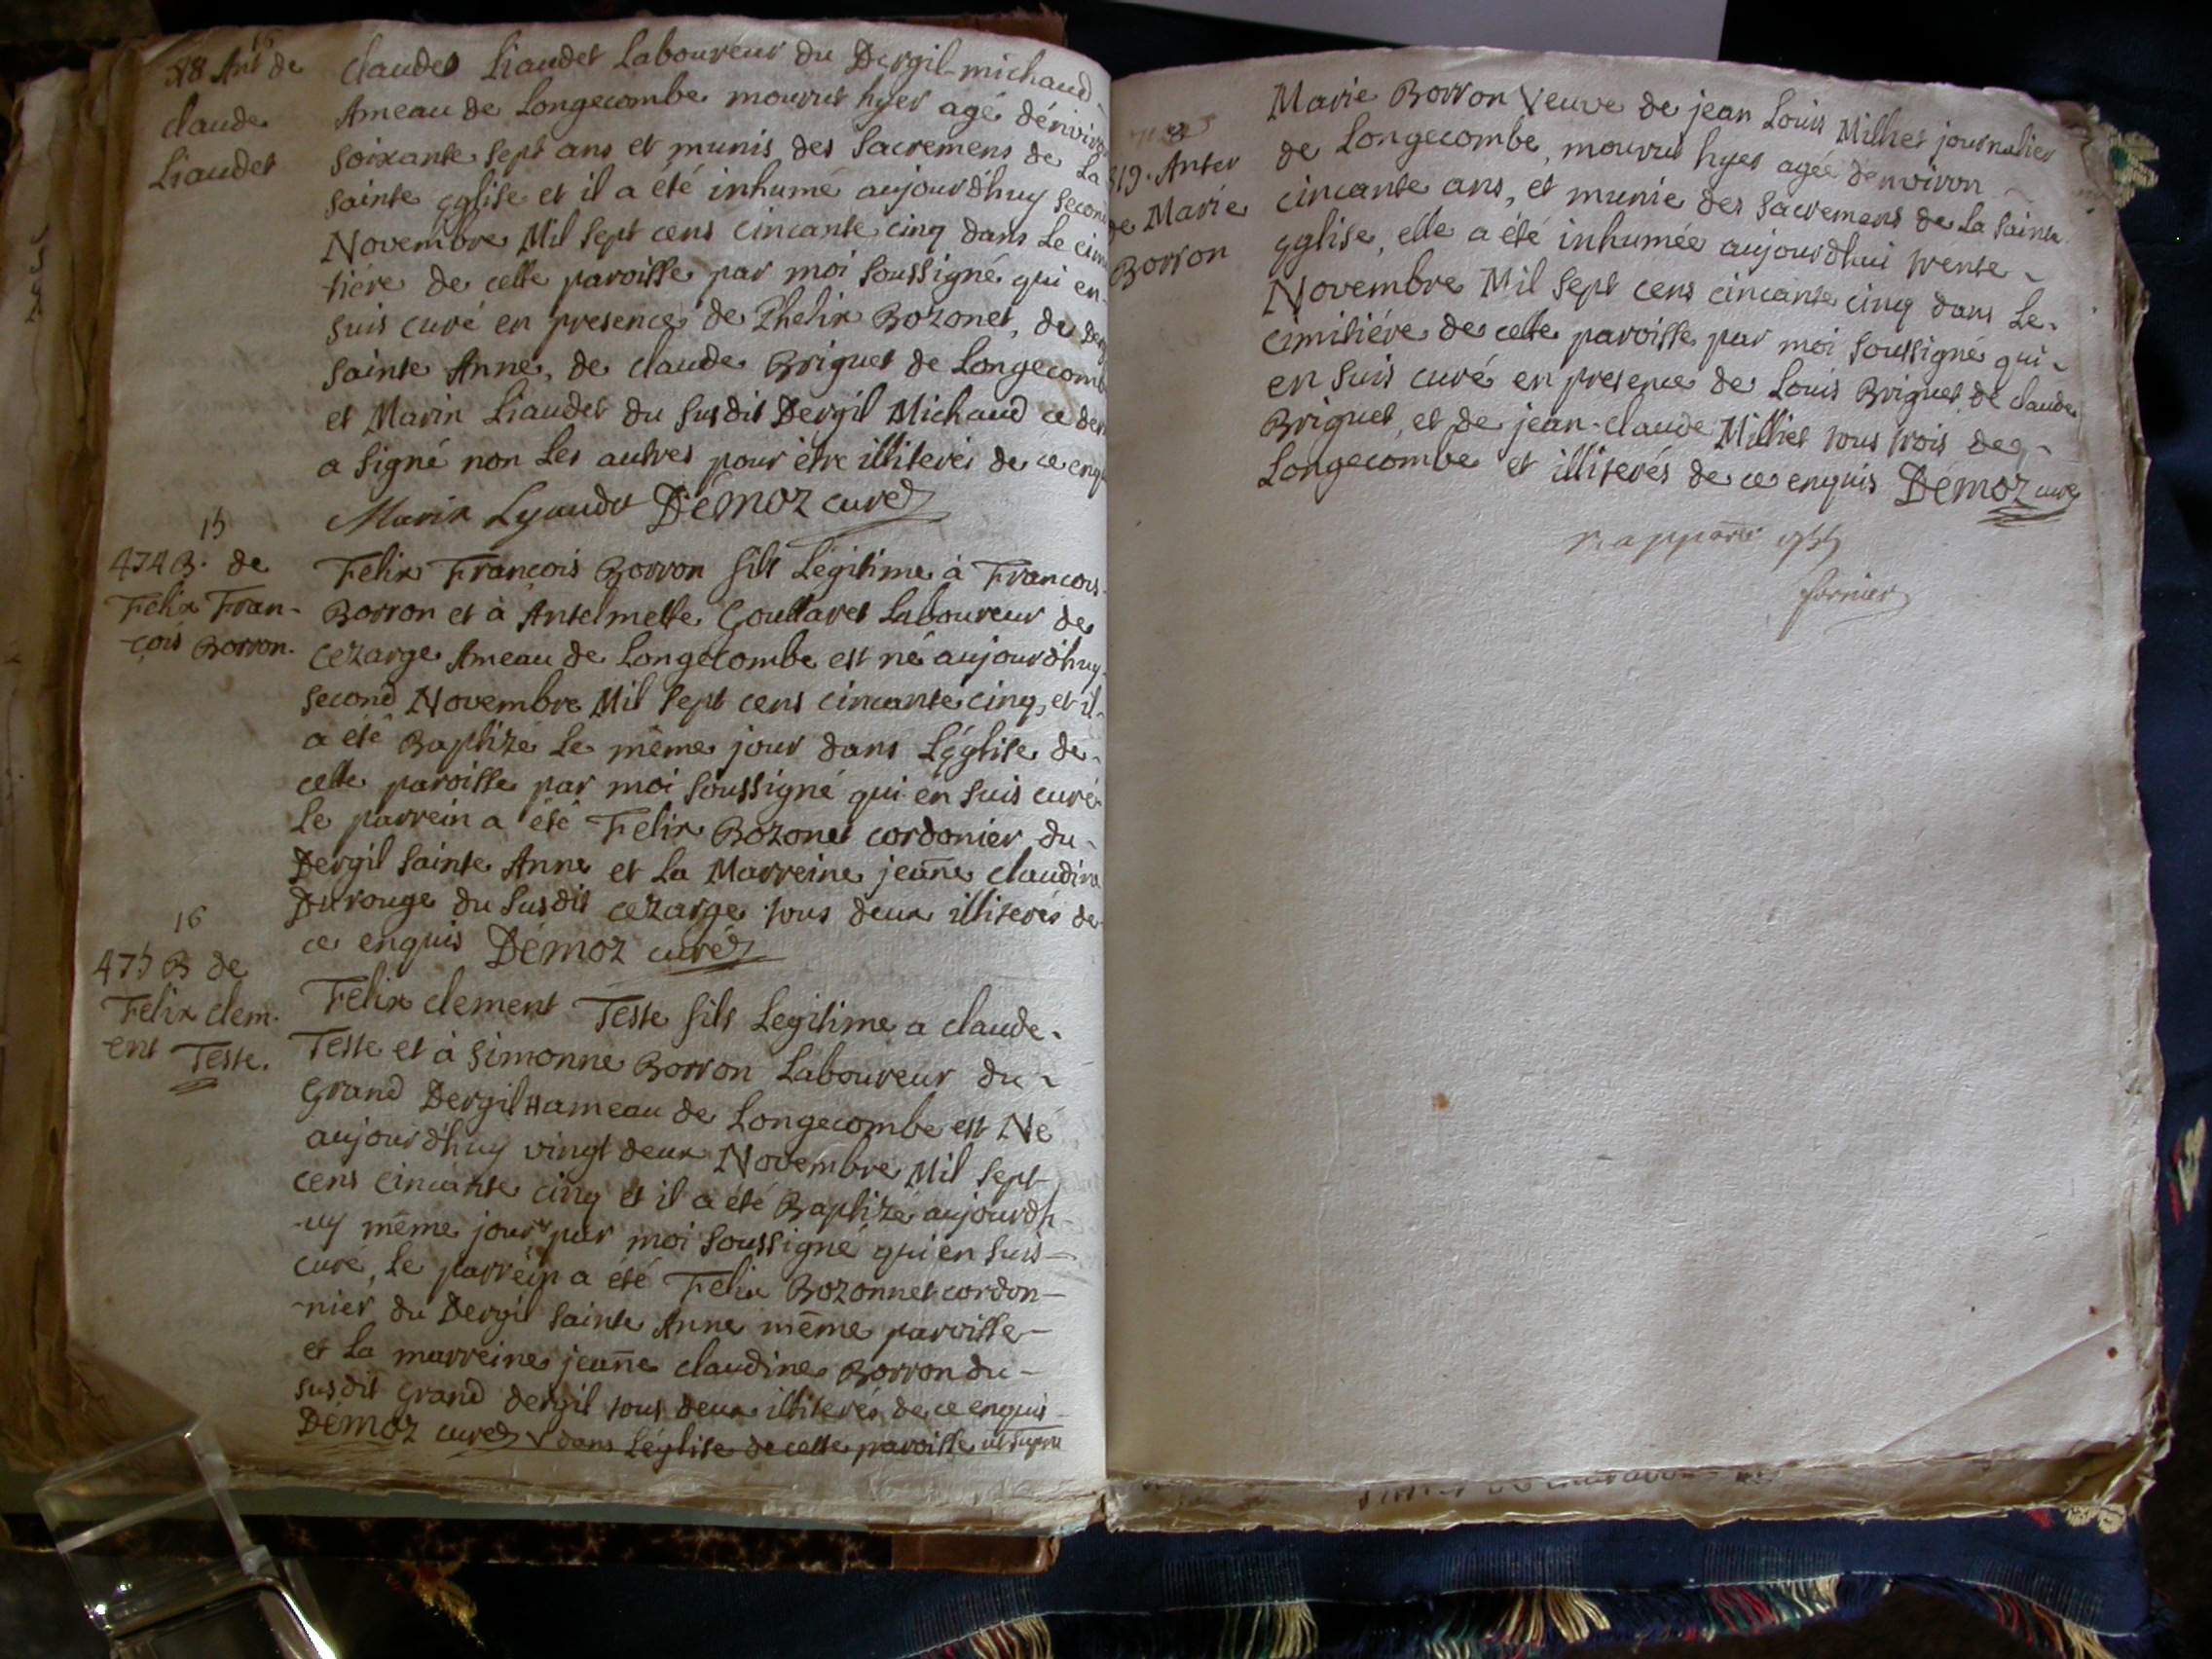 18 Ant de
claude
Liaudet
claude Liaudet Laboureur du Dergil-michaud
Ameau de Longecombe mourut hyer agé d'environ
soixante sept ans et munis des Sacremens de La
sainte eglise et il a été inhumé aujourd'huy second
Novembre Mil sept cens cincante cinq dans Le cimi
tiére de cette paroisse par moi soussigné qui en
suis curé en presence de Phelix Bozonet, de
sainte Anne, de claude Briguet de Longecombe
et Marin Liaudet du susdit Dergil Michaud ce
a signé non Les autres pour être illiterés de ce enq
Marin Lyaudet Démoz curé
15
474 B. de
Felix Fran-
çois Borron.
Felix François Borron fils Légitime à François
Borron et à Antelmette Gouttaret Laboureur de
cezarge Ameau de Longecombe est né aujourd'huy
second Novembre Mil sept cens cincante cinq, et il
a été Baptizé Le même jour dans L'église de
cette paroisse par moi soussigné qui en suis curé
Le parrein a été Felix Bozonet cordonier du
Dergil sainte Anne et La Marreine jeañe claudine
Durouge du susdit cezarge tous deux illiterés de
ce enquis Démoz curé
16
475 B de
Felix clem-
ent Teste.
Felix clement Teste fils Legitime a claude
Teste et à simonne Borron Laboureur du
grand Dergil Hameau de Longecombe est Né
aujourd'huy vingt deux Novembre Mil sept
cens cincante cinq et il a été Baptizé aujourdh
-uy même jour par moi soussigné qui en suis
curé, Le parrein a été Felix Bozonnet cordon-
-nier du Dergil sainte Anne même paroisse
et La marreine jeañe claudine Borron du
susdit grand dergil tous deux illiterés de ce enquis
Démoz curé V dans L'église de cette paroisse ut supra
319. Anter
de Marie
Borron
Marie Borron Veuve de jean Louis Milliet journalier
de Longecombe, mourut hyer agée d'environ
cincante ans, et munie des sacremens de La sainte
eglise, elle a été inhumée aujourdhui trente
Novembre Mil sept cens cincante cinq dans Le
cimitiére de cette paroisse par moi soussigné qui
en suis curé en presence de Louis Briguet de claude
Briguet, et de jean-claude Milliet tous trois de
Longecombe et illiterés de ce enquis Démoz curé
1755